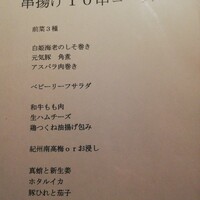 串揚げ10串コース
前菜3種
白姫海老のしそ巻き
元気豚 角煮
アスパラ肉巻き
ベビーリーフサラダ
和牛もも肉
生ハムチーズ
鶏つくね油揚げ包み
紀州南高梅orお浸し
真鯵と新生姜
ホタルイカ
豚ひれと茄子